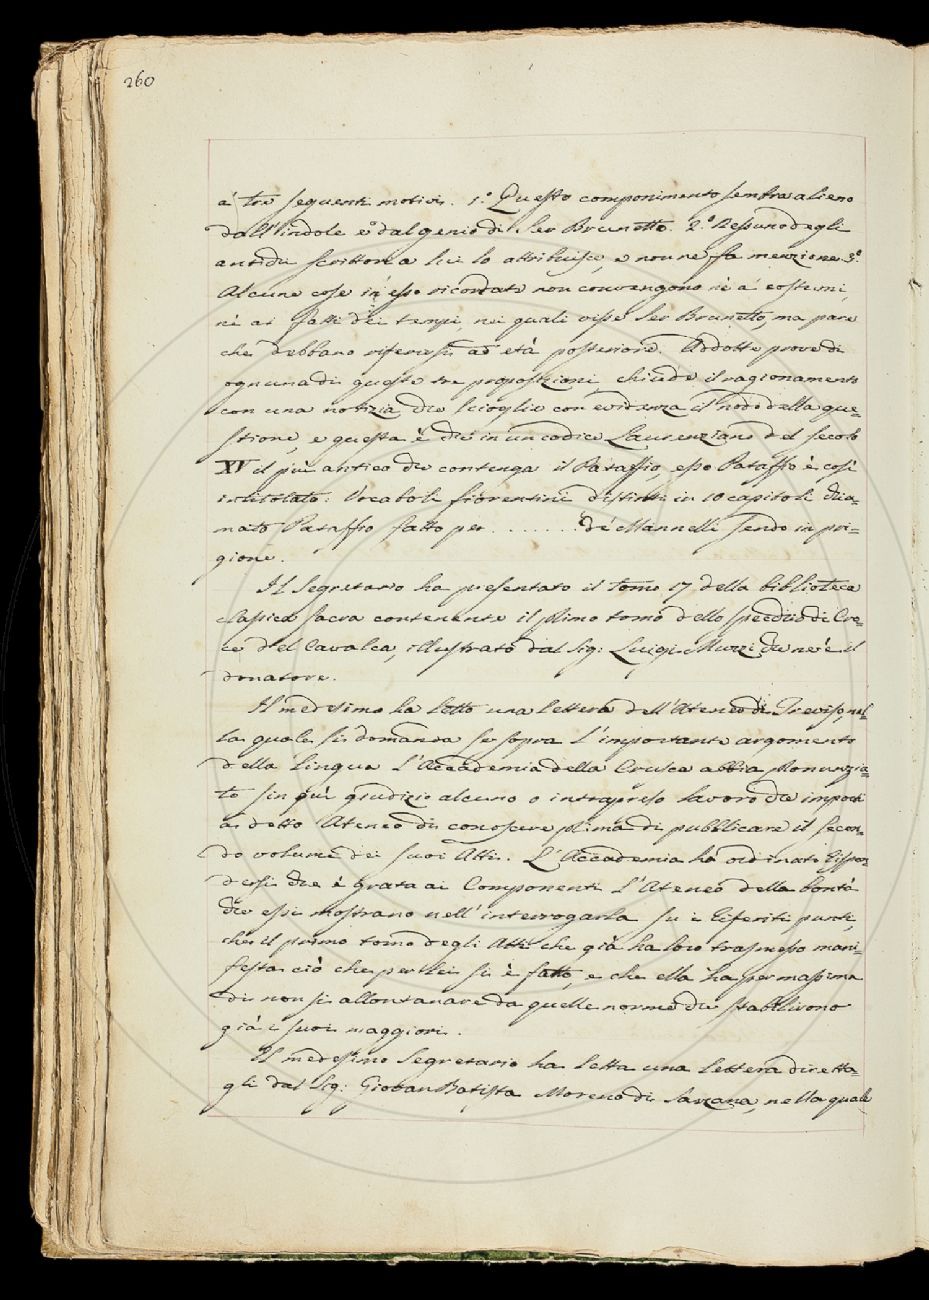 260
a' tre seguenti motivi. 1.° Questo componimento sembra alieno
dall'indole e dal genio di Ser Brunetto. 2.° Nessuno degli
antichi scrittori a lui lo attribuisce, e non ne fa menzione. 3.°
Alcune cose in esso ricordate non convengono nè a' costumi,
nè ai fatti dei tempi, nei quali visse Ser Brunetto, ma pare
che debbano riferirsi ad età posteriore. Addotte prove di
ognuna di queste tre proposizioni chiude il ragionamento
con una notizia che scioglie con evidenza il nodo della que=
stione, e questa è che in un codice Laurenziano del secolo
XV il più antico che contenga il Pataffio, esso Pataffio è così
intitolato: Vocaboli fiorentini distinti in 10 capitoli chia=
mato Pataffio fatto per ....... de' Mannelli sendo in pri=
gione.
Il Segretario ha presentato il tomo 17 della biblioteca
classica sacra contenente il primo tomo dello specchio di Cro=
ce del Cavalca, illustrato dal Sig: Luigi Muzzi che ne è il
donatore.
Il medesimo ha letto una lettera dell'Ateneo di Treviso, nel=
la quale si domanda se sopra l'importante argomento
della lingua l'Accademia della Crusca abbia pronunzia=
to fin quì giudizio alcuno o intrapreso lavoro che importi
a detto Ateneo di conoscere prima di pubblicare il secon=
do volume dei suoi Atti. L'Accademia ha ordinato rispon
dersi che è grata ai Componenti l'Ateneo della bontà
che essi mostrano nell'interrogarla su i riferiti punti,
che il primo tomo degli Atti che già ha loro trasmesso mani=
festa ciò che per lei si è fatto, e che ella ha per massima
di non si allontanare da quelle norme che stabilirono
già i suoi maggiori.
Il medesimo Segretario ha letta una lettera diretta=
gli dal Sig: Giovan Batista Moreno di Sarzana, nella quale